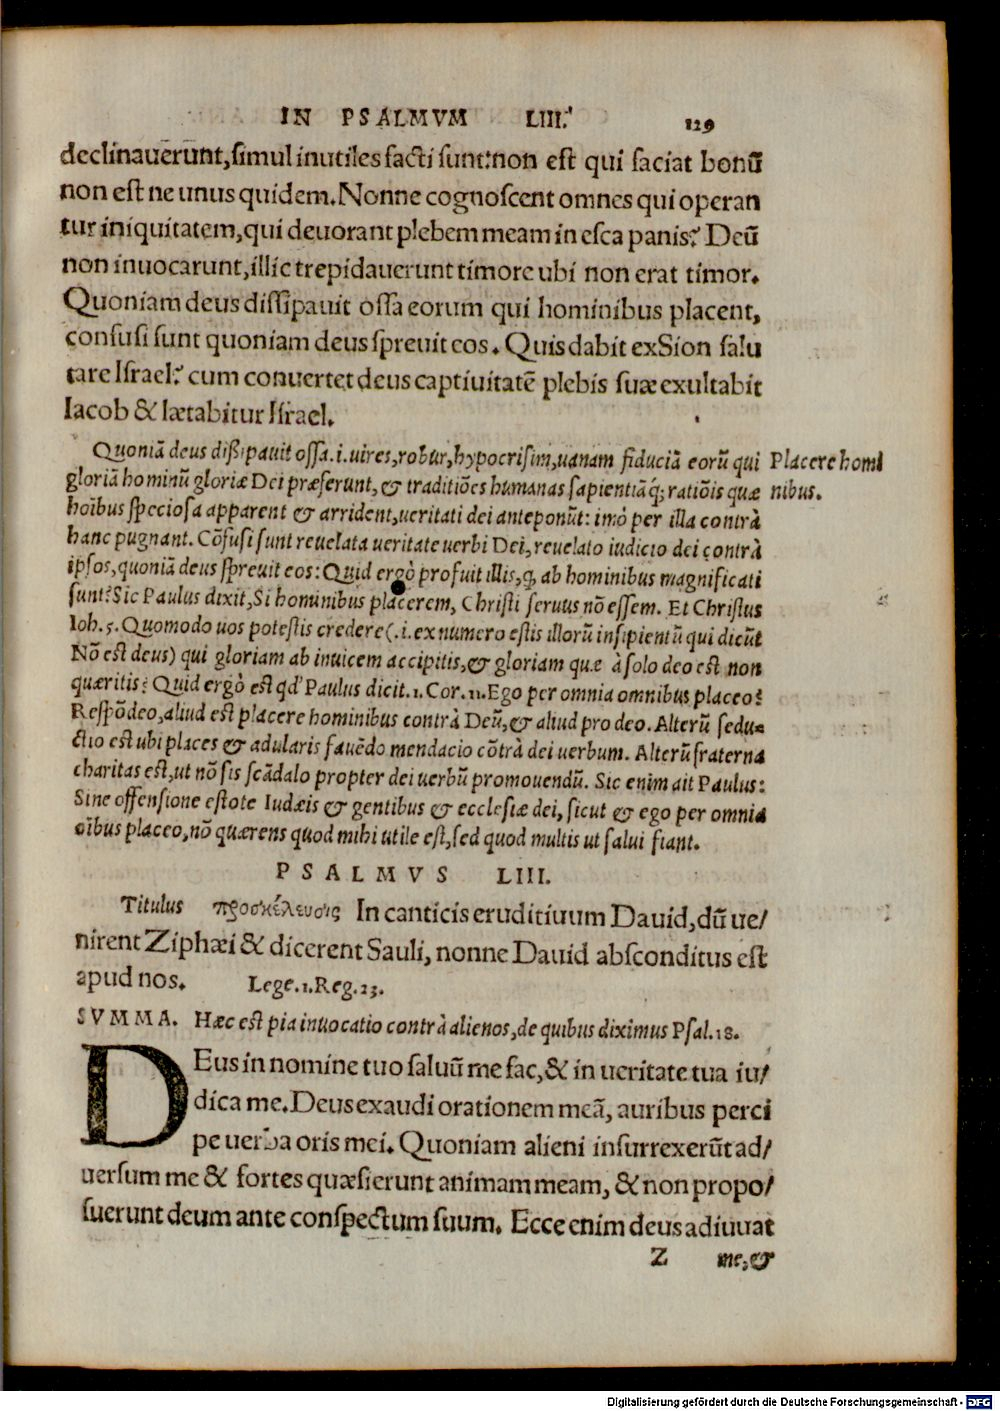 IN PSALMVM LIII. 129
declinauerunt, simul inutiles facti sunt: non est qui faciat bonũ
non est ne unus quidem. Nonne cognoscent omnes qui operan
tur iniquitatem, qui deuorant plebem meam in esca panis? Deũ
non inuocarunt, illic trepidauerunt timore ubi non erat timor.
Quoniam deus dissipauit ossa eorum qui hominibus placent,
confusi sunt quoniam deus spreuit eos. Quis dabit ex Sion salu
tare Israel? cum conuertet deus captiuitatẽ plebis suæ exultabit
Iacob & lætabitur Israel.
Quoniã deus dißipauit ossa .i. uires, robur, hypocrisim, uanam fiduciã eorũ qui
gloriã hominũ gloriæ Dei præferunt, & traditiões humanas sapientiãq; ratiõis quæ
hoĩbus speciosa apparent & arrident, ueritati dei anteponũt: imò per illa contrà
hanc pugnant. Cõfusi sunt reuelata ueritate uerbi Dei, reuelato iudicio dei contrà
ipsos, quoniã deus spreuit eos: Quid ergò profuit illis, q̃ ab hominibus magnificati
sunt? Sic Paulus dixit, Si hominibus placerem, Christi seruus nõ essem. Et Christus
Ioh. 5. Quomodo uos potestis credere (.i. ex numero estis illorũ insipientũ qui dicũt
Nõ est deus) qui gloriam ab inuicem accipitis, & gloriam quæ à solo deo est non
quæritis? Quid ergò est qd' Paulus dicit .1. Cor. 11. Ego per omnia omnibus placeo?
Respõdeo, aliud est placere hominibus contrà Deũ, & aliud pro deo. Alterũ sedu-
ctio est ubi places & adularis fauẽdo mendacio cõtrà dei uerbum. Alterũ fraterna
charitas est, ut nõ sis scãdalo propter dei uerbũ promouendũ. Sic enim ait Paulus:
Sine offensione estote Iudæis & gentibus & ecclesiæ dei, sicut & ego per omnia
oĩbus placeo, nõ quærens quod mihi utile est, sed quod multis ut salui fiant.
Placere homi
nibus.
PSALMVS LIII.
Titulus προσκέλευσις In canticis eruditiuum Dauid, dũ ue/
nirent Ziphæi & dicerent Sauli, nonne Dauid absconditus est
apud nos. Lege .1. Reg. 23.
SVMMA. Hæc est pia inuocatio contrà alienos, de quibus diximus Psal. 18.
DEus in nomine tuo saluũ me fac, & in ueritate tua iu/
dica me. Deus exaudi orationem meã, auribus perci
pe uerba oris mei. Quoniam alieni insurrexerũt ad/
uersum me & fortes quæsierunt animam meam, & non propo/
suerunt deum ante conspectum suum. Ecce enim deus adiuuat
Z me, &
Digitalisierung gefördert durch die Deutsche Forschungsgemeinschaft - DFG